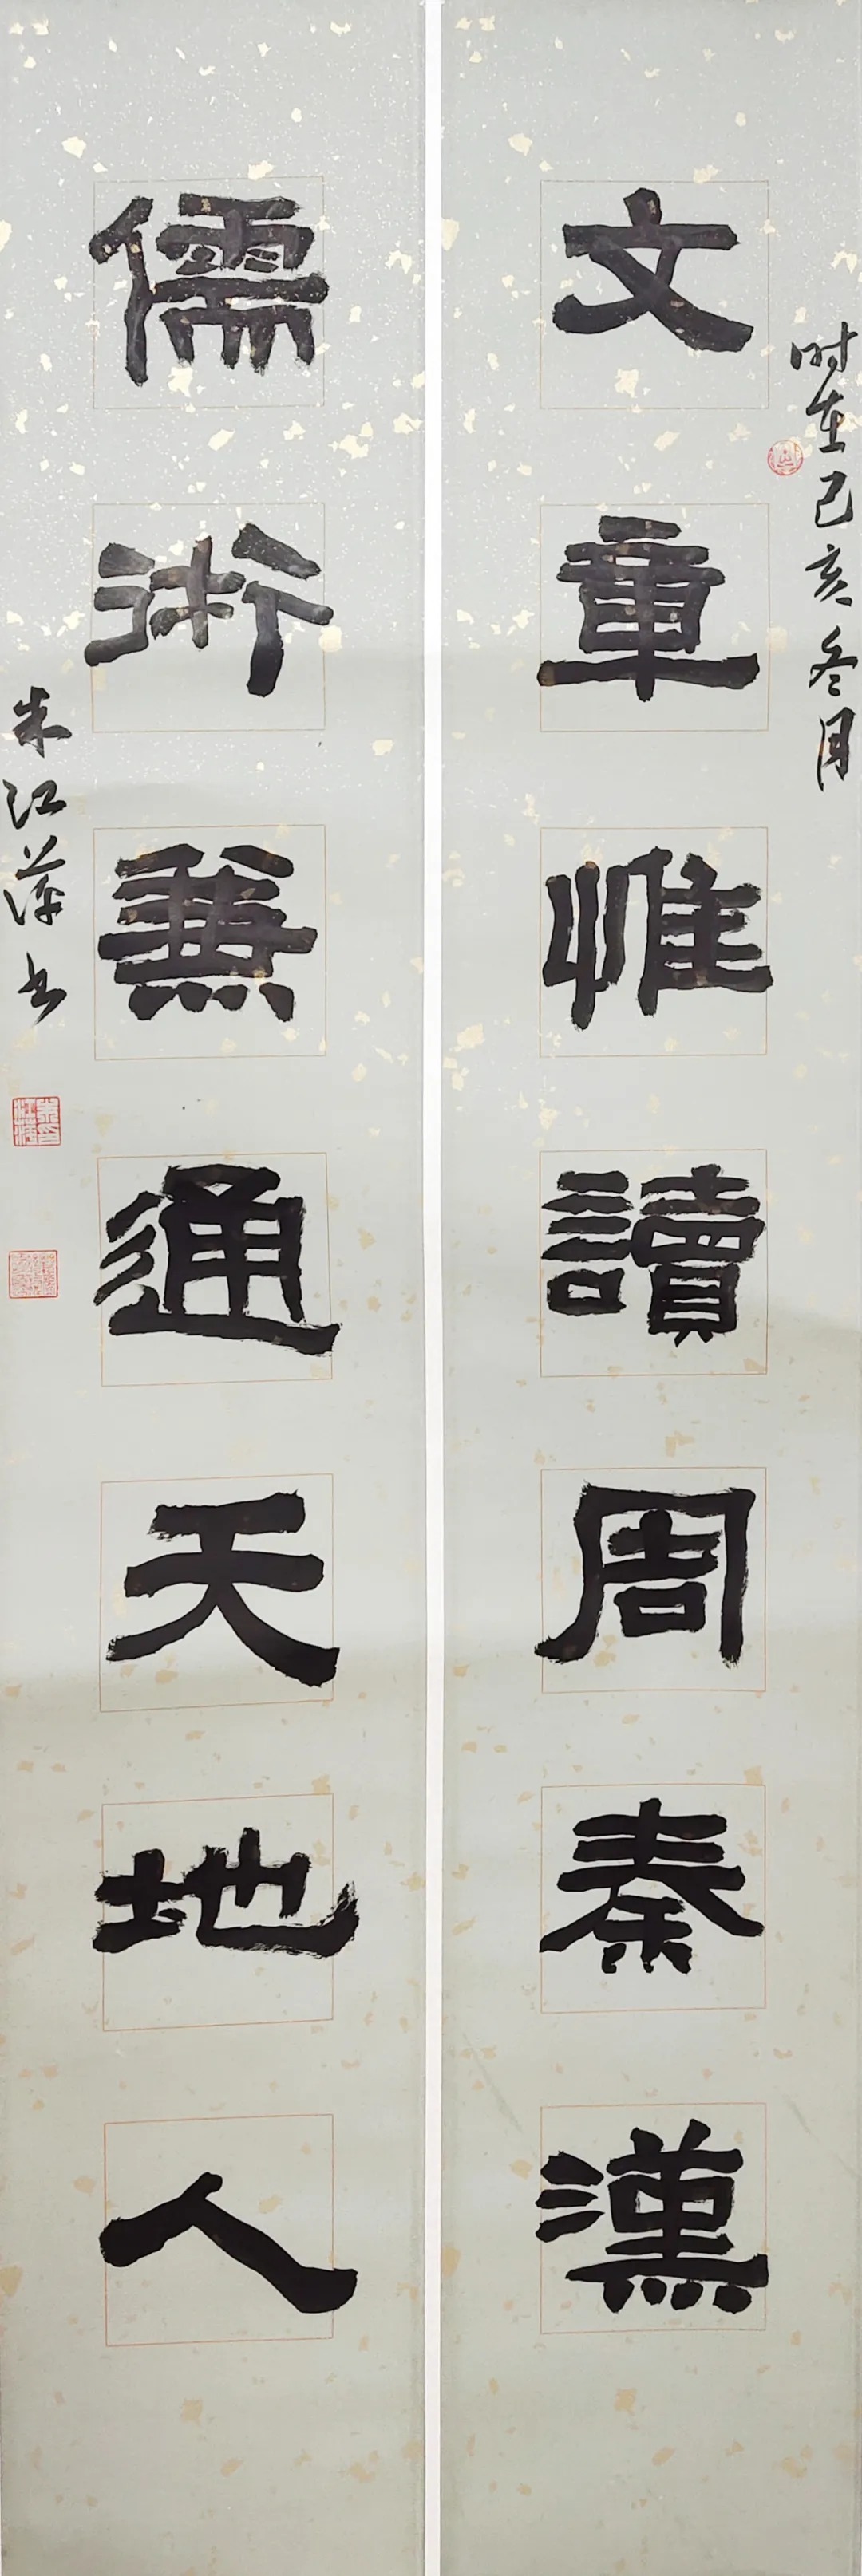 时在己亥冬月
文章惟讀周秦漢
儒術兼通天地人
朱江萍书